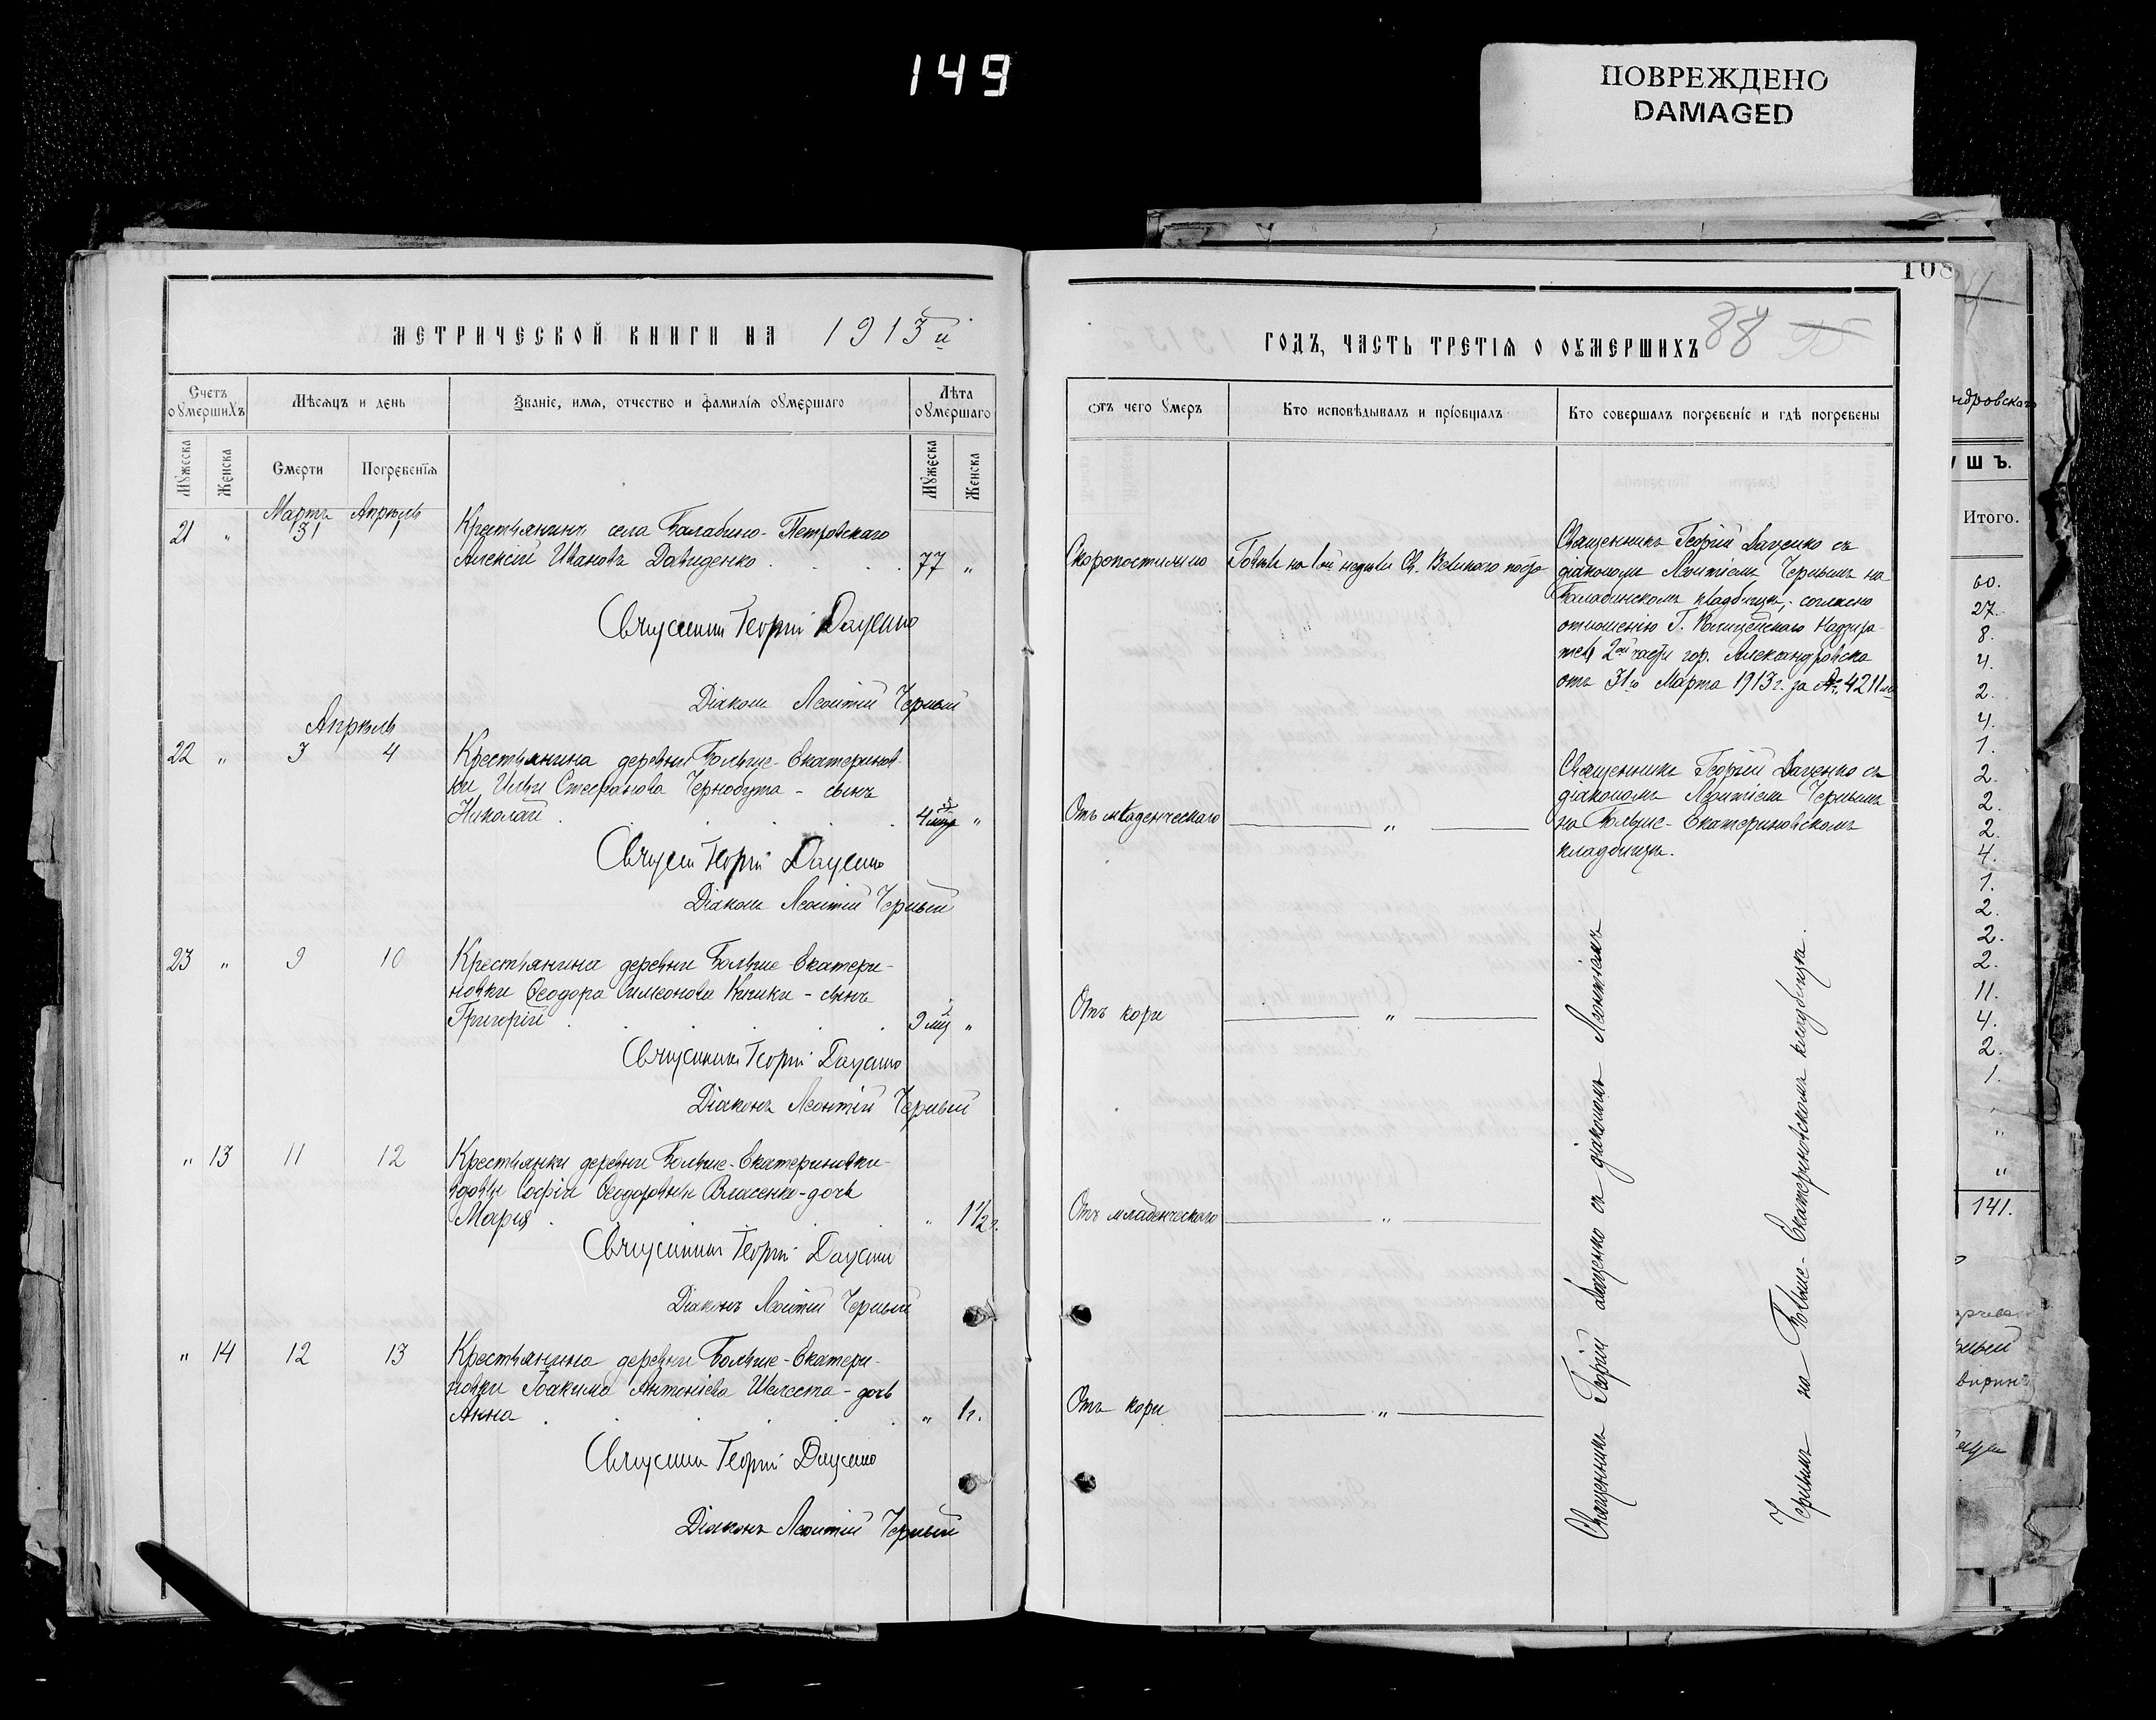 149
ПОВРЕЖДЕНО
DAMAGED
108
МЕТРИЧЕСКОЙ КНИГИ НА 1913й
ГОДЪ, ЧАСТЬ ТРЕТІЯ О ОУМЕРШИХЪ 88
Счетъ оумершихъ
Мѣсяцъ и день
Званіе, имя, отчество и фамилія оумершаго
Лѣта оумершаго
Мужеска
Женска
Смерти
Погребенія
Мужеска
Женска
Отъ чего умеръ
Кто исповѣдывалъ и пріобщалъ
Кто совершалъ погребеніе и гдѣ погребены
Мартъ Апрѣль
21 " 31 1 Крестьянинъ села Балабино-Петровскаго
Алексій Ивановъ Давиденко 77 "
Священникъ Георгій Даценко
Діаконъ Леонтій Черный
Скоропостижно
Говѣлъ на 1ой недѣли Св. Великаго поста
Священникъ Георгій Даценко съ
діакономъ Леонтіемъ Чернымъ на
Балабинскомъ кладбищѣ, согласно
отношенію Г. Полицейскаго Надзира-
теля 2ой части гор. Александровска
отъ 31го Марта 1913 г. за № 4211мъ
Апрѣль
22 " 3 4 Крестьянина деревни Больше-Екатеринов-
ки Ильи Стефанова Чернобута - сынъ
Николай 4 "
Священ Георгій Даценко
Діаконъ Леонтій Черный
Отъ младенческаго
"
Священникъ Георгій Даценко съ
діакономъ Леонтіемъ Чернымъ
на Больше-Екатериновскомъ
кладбищѣ.
23 " 9 10 Крестьянина деревни Больше-Екатери-
новки Ѳеодора Симеонова - сынъ
Григорій 9 мц "
Священникъ Георгій Даценко
Діаконъ Леонтій Черный
Отъ кори
"
" 13 11 12 Крестьянки деревни Больше-Екатериновки-
вдовы Софіи Ѳеодоровны Власенко-дочь
Марія " 1 1/2 г.
Священникъ Георгій Даценко
Діаконъ Леонтій Черный
Отъ младенческаго
"
" 14 12 13 Крестьянина деревни Больше-Екатери-
новки Іоакима Антоніева Шелеста - дочь
Анна " 1 г.
Священникъ Георгій Даценко
Діаконъ Леонтій Черный
Отъ кори
"
Священникъ Георгій Даценко съ діакономъ Леонтіемъ
Чернымъ на Больше-Екатериновскомъ кладбищѣ.
ндровскаго
Ш Ъ.
Итого.
60.
27.
8.
4.
2.
4.
1.
2.
2.
2.
4.
1.
2.
2.
2.
11.
4.
2.
1.
"
"
141.